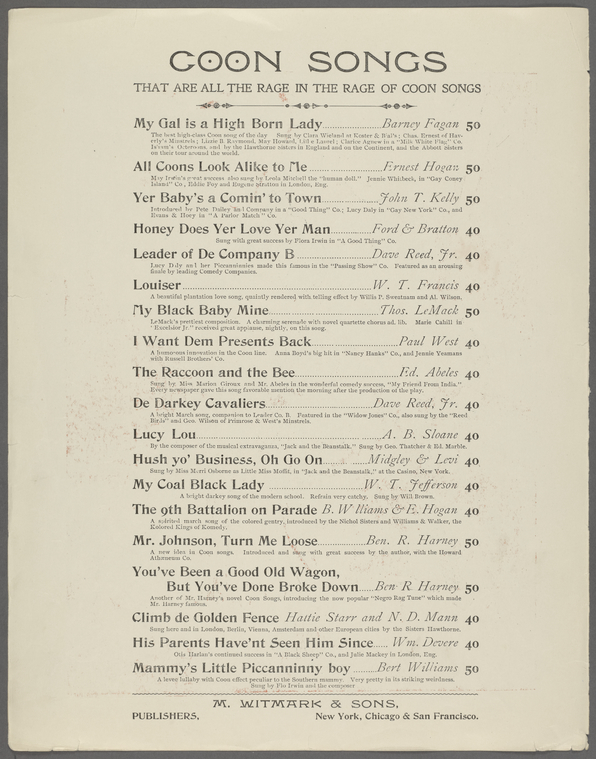 COON SONGS
THAT ARE ALL THE RAGE IN THE RAGE OF COON SONGS
My Gal is a High Born Lady......................Barney Fagan 50
The best high-class Coon song of the day Sung by Clara Wieland at Koster & Bial's; Chas. Ernest of Hav-
erly's Minstrels; Lizzie B. Raymond, May Howard, Clarice Agnew in a "Milk White Flag" Co.
Isham's Octoroons, and by the Hawthorne sisters in England and on the Continent, and the Abbott sisters
on their tour around the world.
All Coons Look Alike to Me......................Ernest Hogan 50
May Irwin's great success also sung by Leola Mitchell the "human doll." Jennie Whitbeck, in "Gay Coney
Island" Co., Eddie Foy and Eugene Stratton in London, Eng.
Yer Baby's a Comin' to Town......................John T. Kelly 50
Introduced by Pete Dailey and Company in a "Good Thing" Co.; Lucy Daly in "Gay New York" Co., and
Evans & Hoey in "A Parlor Match" Co.
Honey Does Yer Love Yer Man......................Ford & Bratton 40
Sung with great success by Flora Irwin in "A Good Thing" Co.
Leader of De Company B......................Dave Reed, Jr. 40
Lucy Daly and her Piccanninies made this famous in the "Passing Show" Co. Featured as an arousing
finale by leading Comedy Companies.
Louiser......................W. T. Francis 40
A beautiful plantation love song, quaintly rendered with telling effect by Willis P. Sweatnam and Al. Wilson.
My Black Baby Mine......................Thos. LeMack 50
LeMack's prettiest composition. A charming serenade with novel quartette chorus ad. lib. Marie Cahill in
"Excelsior Jr." received great applause, nightly, on this song.
I Want Dem Presents Back......................Paul West 40
A humorous innovation in the Coon line. Anna Boyd's big hit in "Nancy Hanks" Co., and Jennie Yeamans
with Russell Brothers' Co.
The Raccoon and the Bee......................Ed. Abeles 40
Sung by Miss Marion Giroux and Mr. Abeles in the wonderful comedy success, "My Friend From India."
Every newspaper gave this song favorable mention the morning after the production of the play.
De Darkey Cavaliers......................Dave Reed, Jr. 40
A bright March song, companion to Leader Co. B. Featured in the "Widow Jones" Co., also sung by the "Reed
Birds" and Geo. Wilson of Primrose & West's Minstrels.
Lucy Lou......................A. B. Sloane 40
By the composer of the musical extravaganza, "Jack and the Beanstalk." Sung by Geo. Thatcher & Ed. Marble.
Hush yo' Business, Oh Go On......................Midgley & Levi 40
Sung by Miss Merri Osborne as Little Miss Moffit, in "Jack and the Beanstalk," at the Casino, New York.
My Coal Black Lady......................W. T. Jefferson 40
A bright darkey song of the modern school. Refrain very catchy. Sung by Will Brown.
The 9th Battalion on Parade B. Williams & E. Hogan 40
A spirited march song of the colored gentry, introduced by the Nichol Sisters and Williams & Walker, the
Kolored Kings of Komedy.
Mr. Johnson, Turn Me Loose......................Ben. R. Harney 50
A new idea in Coon songs. Introduced and sung with great success by the author, with the Howard
Athenæum Co.
You've Been a Good Old Wagon,
But You've Done Broke Down......................Ben R Harney 50
Another of Mr. Harney's novel Coon Songs, introducing the now popular "Negro Rag Tune" which made
Mr. Harney famous.
Climb de Golden Fence Hattie Starr and N. D. Mann 40
Sung here and in London, Berlin, Vienna, Amsterdam and other European cities by the Sisters Hawthorne.
His Parents Have'nt Seen Him Since......Wm. Devere 40
Otis Harlan's continued success in "A Black Sheep" Co., and Julie Mackey in London, Eng.
Mammy's Little Piccanninny boy......Bert Williams 50
A lovely lullaby with Coon effect peculiar to the Southern mammy. Very pretty in its striking weirdness.
Sung by Flo Irwin and the composer
M. WITMARK & SONS,
PUBLISHERS, New York, Chicago & San Francisco.